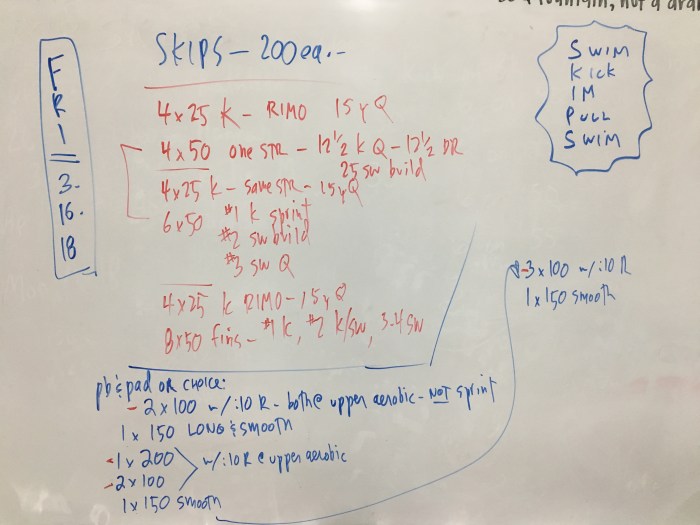 FRI 3.16.18
SKIPS - 200 ea. -
SWIM
Kick
IM
PULL
SWIM
4x25 K - RIMO 15y Q
4x50 one STR - 12 1/2 K Q - 12 1/2 DR
25 SW build
4x25 K - same STR - 15y Q
6x50 #1 K sprint
#2 SW build
#3 SW Q
4x25 K RIMO - 15y Q
8x50 fins - #1 K, #2 K/SW, 3-4 SW
pb & pad OR CHOICE:
- 2x100 w/ :10 R - both @ upper aerobic - NOT sprint
1x150 LONG & smooth
- 1x200
- 2x100
w/ :10 R @ upper aerobic
1x150 smooth
- 3x100 w/ :10 R
1x150 smooth